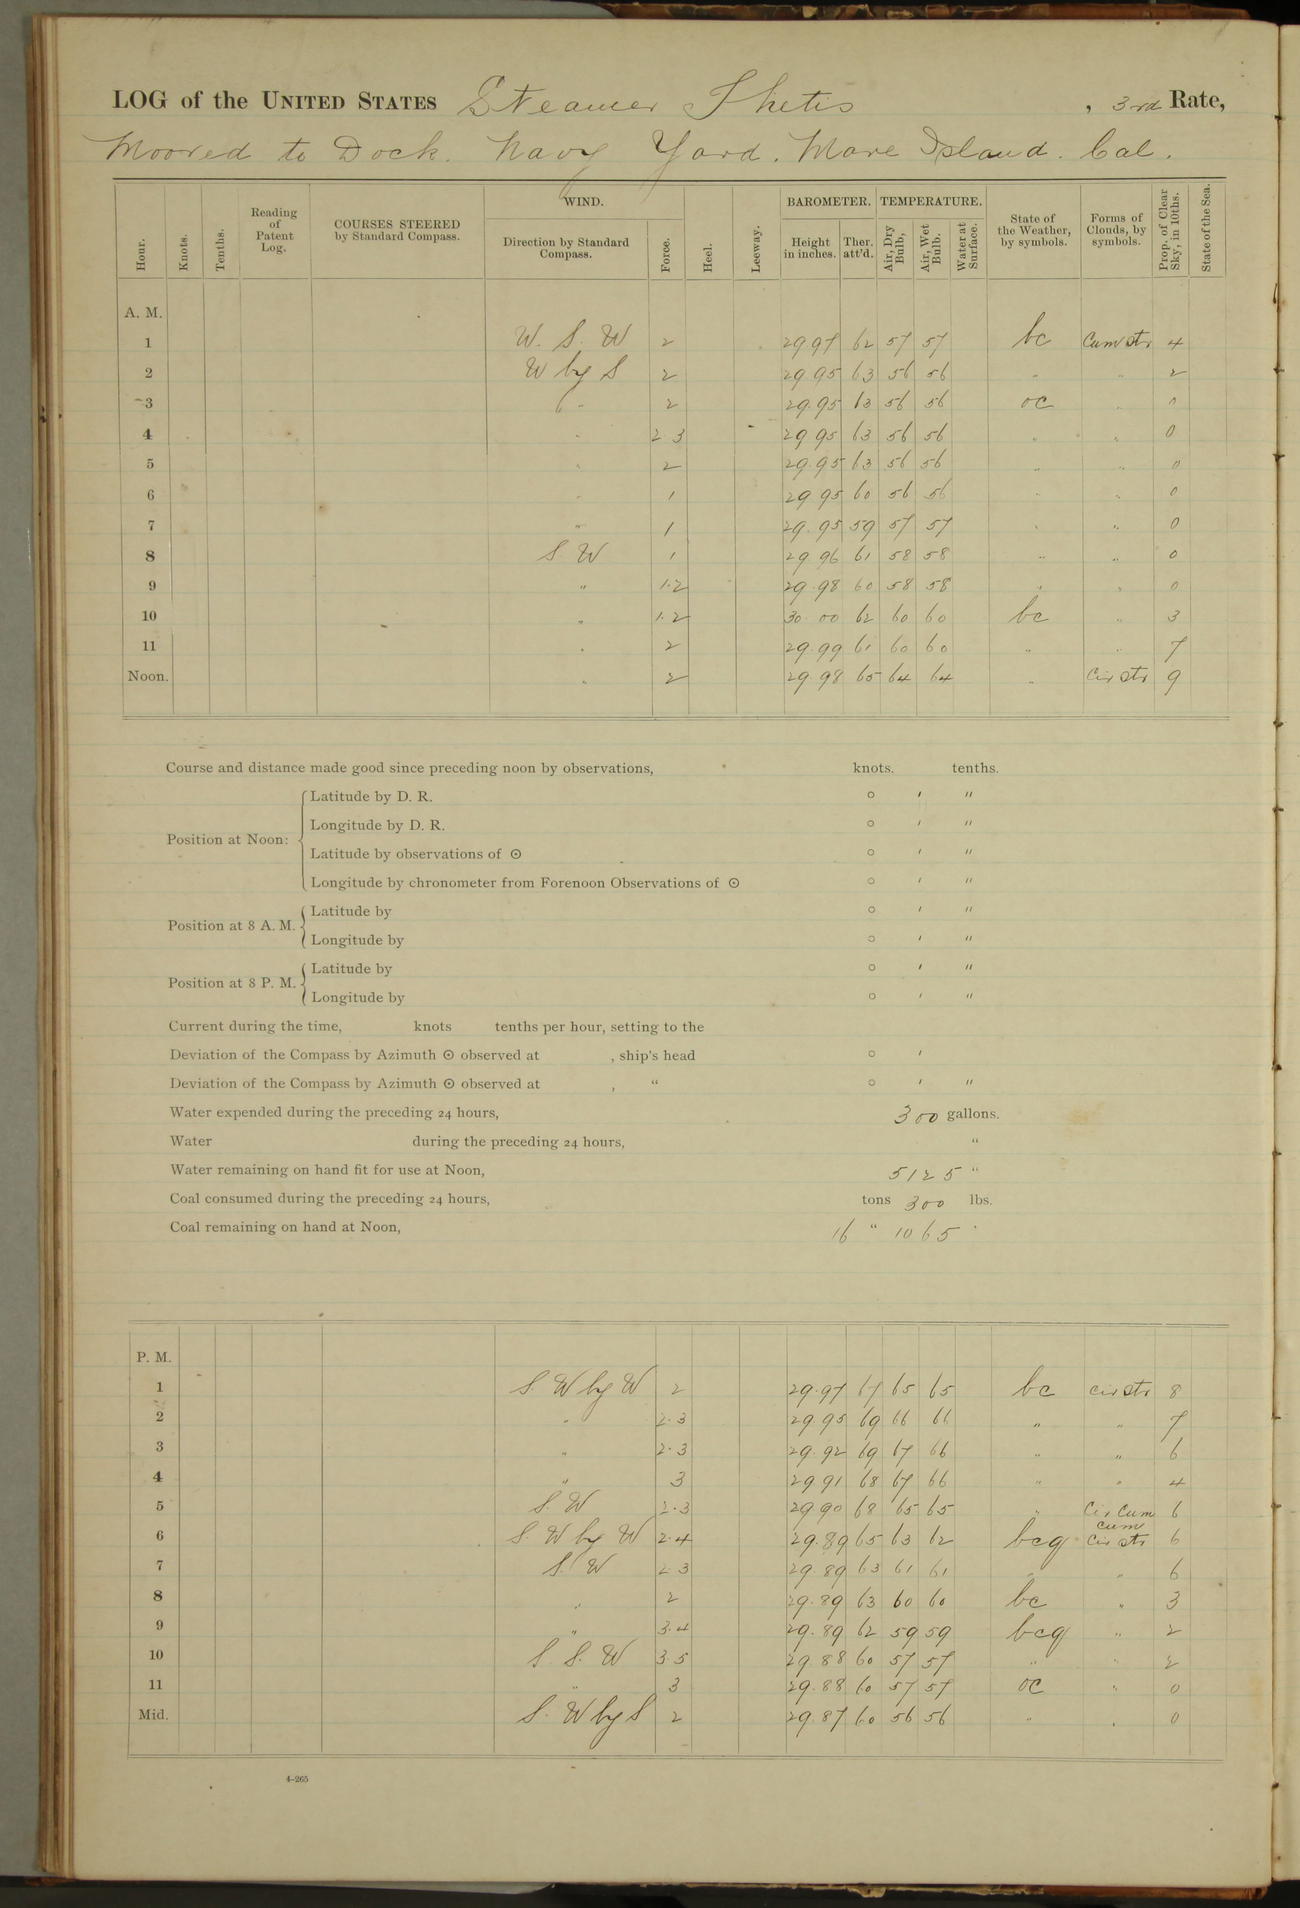 LOG of the UNITED STATES Steamer Thetis, 3rd Rate,
Moored to Dock. Navy Yard. Mare Island. Cal.
Hour. Knots. Tenths. Reading of Patent Log. COURSES STEERED by Standard Compass. WIND. Direction by Standard Compass. Force. Heel. Leeway. BAROMETER. Height in inches. Ther. att'd. TEMPERATURE. Air, Dry Bulb, Air, Wet Bulb. Water at Surface. State of the Weather, by symbols. Forms of Clouds, by symbols. Prop. of Clear Sky, in 10ths. State of the Sea.
A. M.
1 W. S. W 2 29 97 62 57 57 bc Cum str 4
2 W by S 2 29 95 63 56 56 " " 2
3 " 2 29.95 63 56 56 oc " 0
4 " 2 3 29 95 63 56 56 " " 0
5 " 2 29.95 63 56 56 " " 0
6 " 1 29 95 60 56 56 " " 0
7 " 1 29.95 59 57 57 " " 0
8 S W 1 29 96 61 58 58 " " 0
9 " 1.2 29.98 60 58 58 " " 0
10 " 1.2 30 00 62 60 60 bc " 3
11 " 2 29.99 61 60 60 " " 7
Noon. " 2 29 98 65 64 64 " Cir str 9
Course and distance made good since preceding noon by observations, knots. tenths.
Position at Noon:
Latitude by D. R. ° ′ ″
Longitude by D. R. ° ′ ″
Latitude by observations of ⊙ ° ′ ″
Longitude by chronometer from Forenoon Observations of ⊙ ° ′ ″
Position at 8 A. M.
Latitude by ° ′ ″
Longitude by ° ′ ″
Position at 8 P. M.
Latitude by ° ′ ″
Longitude by ° ′ ″
Current during the time, knots tenths per hour, setting to the
Deviation of the Compass by Azimuth ⊙ observed at , ship's head ° ′
Deviation of the Compass by Azimuth ⊙ observed at , " ° ′ ″
Water expended during the preceding 24 hours, 300 gallons.
Water during the preceding 24 hours, "
Water remaining on hand fit for use at Noon, 5125 "
Coal consumed during the preceding 24 hours, tons 300 lbs.
Coal remaining on hand at Noon, 16 " 1065 "
P. M.
1 S. W by W 2 29.97 67 65 65 bc cir str 8
2 " 2.3 29.95 69 66 66 " " 7
3 " 2.3 29.92 69 67 66 " " 6
4 " 3 29 91 68 67 66 " " 4
5 S. W 2.3 29 90 68 65 65 " Cir Cum 6
6 S. W by W 2.4 29.89 65 63 62 bcq cum Cir str 6
7 S. W 2 3 29 89 63 61 61 " " 6
8 " 2 29.89 63 60 60 bc " 3
9 " 3.4 29.89 62 59 59 bcq " 2
10 S. S. W 3.5 29 88 60 57 57 " " 2
11 " 3 29.88 60 57 57 oc " 0
Mid. S. W by S 2 29.87 60 56 56 " " 0
4-265